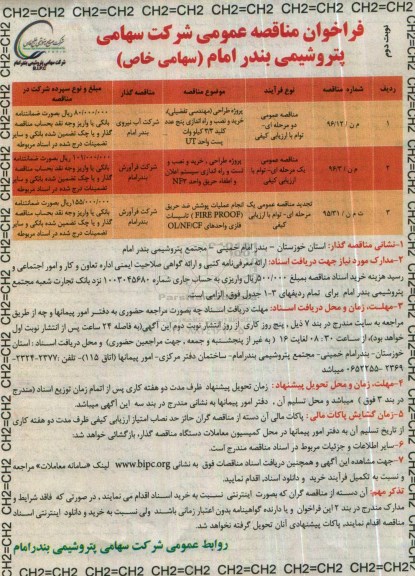 CH2=CH2
نوبت دوم
فراخوان مناقصه عمومی شرکت سهامی
پتروشیمی بندر امام (سهامی خاص)
شرکت سهامی پتروشیمی بندر امام
B.I.P.C
ردیف
شماره مناقصه
نوع فرآیند
موضوع مناقصه
مناقصه گذار
مبلغ و نوع سپرده شرکت در مناقصه
۱
م ن ۹۶/۱۲
مناقصه عمومی دو مرحله ای- توام با ارزیابی کیفی
پروژه طراحی (مهندسی تفضیلی)، خرید و نصب و راه اندازی پنج عدد کلید ۳/۳ کیلو ولت پست واحد UT
شرکت آب نیروی بندر امام
۸۰/۰۰۰/۰۰۰ ریال بصورت ضمانتنامه بانکی یا واریز وجه نقد بحساب مناقصه گذار و یا چک تضمین شده بانکی و سایر تضمینات درج شده در اسناد مربوطه
۲
م ن ۹۶/۳
مناقصه عمومی یک مرحله ای- توام با ارزیابی کیفی
پروژه طراحی، خرید و نصب و راه اندازی سیستم اعلان و اطفاء حریق واحد NF۲
شرکت فرآورش بندرامام
بصورت ضمانتنامه بانکی یا واریز وجه نقد بحساب مناقصه گذار و یا چک تضمین شده بانکی و سایر تضمینات درج شده در اسناد مربوطه
۳
ت م ن ۹۵/۳۱
تجدید مناقصه عمومی یک مرحله ای- توام با ارزیابی کیفی
انجام عملیات پوشش ضد حریق (FIRE PROOF) تاسیسات فلزی واحدهای OL/NF/CF
شرکت فرآورش بندرامام
۱۵۵/۰۰۰/۰۰۰ ریال بصورت ضمانتنامه بانکی یا واریز وجه نقد بحساب مناقصه گذار و یا چک تضمین شده بانکی و سایر تضمینات درج شده در اسناد مربوطه
۱-نشانی مناقصه گذار: استان خوزستان - بندر امام خمینی - مجتمع پتروشیمی بندر امام
۲-مدارک مورد نیاز جهت دریافت اسناد: ارائه معرفی نامه کتبی و ارائه گواهی صلاحیت ایمنی اداره تعاون و کار و امور اجتماعی و
رسید هزینه خرید اسناد مناقصه بمبلغ ۵۰۰/۰۰۰ ریال واریزی به حساب جاری شماره ۱۰۰۳۰۴۵۶۸۰ نزد بانک تجارت شعبه مجتمع
پتروشیمی بندر امام برای تمام ردیفهای ۳-۱ جدول فوق، الزامی است.
۳-مهلت، زمان و محل دریافت اسناد: مهلت دریافت اسناد چه بصورت مراجعه حضوری به دفتر امور پیمانها و چه از طریق
مراجعه به سایت مندرج در بند ۷ ذیل، پنج روز کاری از روز انتشار نوبت دوم این آگهی(به فاصله ۲۴ ساعت پس از انتشار نوبت اول
خواهد بود)، از ساعت ۰۸:۳۰ لغایت ۱۶ ( به غیر از پنجشنبه و جمعه، جهت مراجعین حضوری) و محل دریافت اسناد: استان
خوزستان- بندرامام خمینی- مجتمع پتروشیمی بندرامام- ساختمان دفتر مرکزی- امور پیمانها (اتاق ۱۱۵)- تلفن: ۲۲۷۷-۲۲۲۴-
۲۳۶۹ میباشد.
۴-مهلت، زمان و محل تحویل پیشنهاد: زمان تحویل پیشنهاد ظرف مدت دو هفته کاری پس از اتمام زمان توزیع اسناد (مندرج
در بند ۳ فوق) میباشد و محل تسلیم آن، دفتر امور پیمانها به نشانی مندرج در بند سه این آگهی میباشد.
۵-زمان گشایش پاکات مالی: پاکات مالی آن دسته از مناقصه گران حائز حد نصاب امتیاز ارزیابی کیفی ظرف مدت دو هفته کاری
از تاریخ تسلیم آن به دفتر امور پیمانها در محل کمیسیون معاملات دستگاه مناقصه گذار، بازگشائی خواهد شد.
۶-سایر اطلاعات و جزئیات مربوط در اسناد مناقصه مندرج است.
۷-جهت مشاهده این آگهی و همچنین دریافت اسناد مناقصات فوق به نشانی www.bipc.org لینک «سامانه معاملات» مراجعه
و نسبت به تکمیل فرآیند خرید و دانلود اسناد، اقدام نمایید.
تذکر مهم: آن دسته از مناقصه گران که بصورت اینترنتی نسبت به خرید اسناد اقدام می نمایند، در صورتی که فاقد شرایط و
مدارک مندرج در بند ۲ این فراخوان و یا دارنده گواهینامه بدون اعتبار زمانی باشند ولی نسبت به خرید و دانلود اینترنتی اسناد
مناقصه اقدام نمایند، پاکات پیشنهادی آنان تحویل گرفته نخواهد شد.
روابط عمومی شرکت سهامی پتروشیمی بندرامام